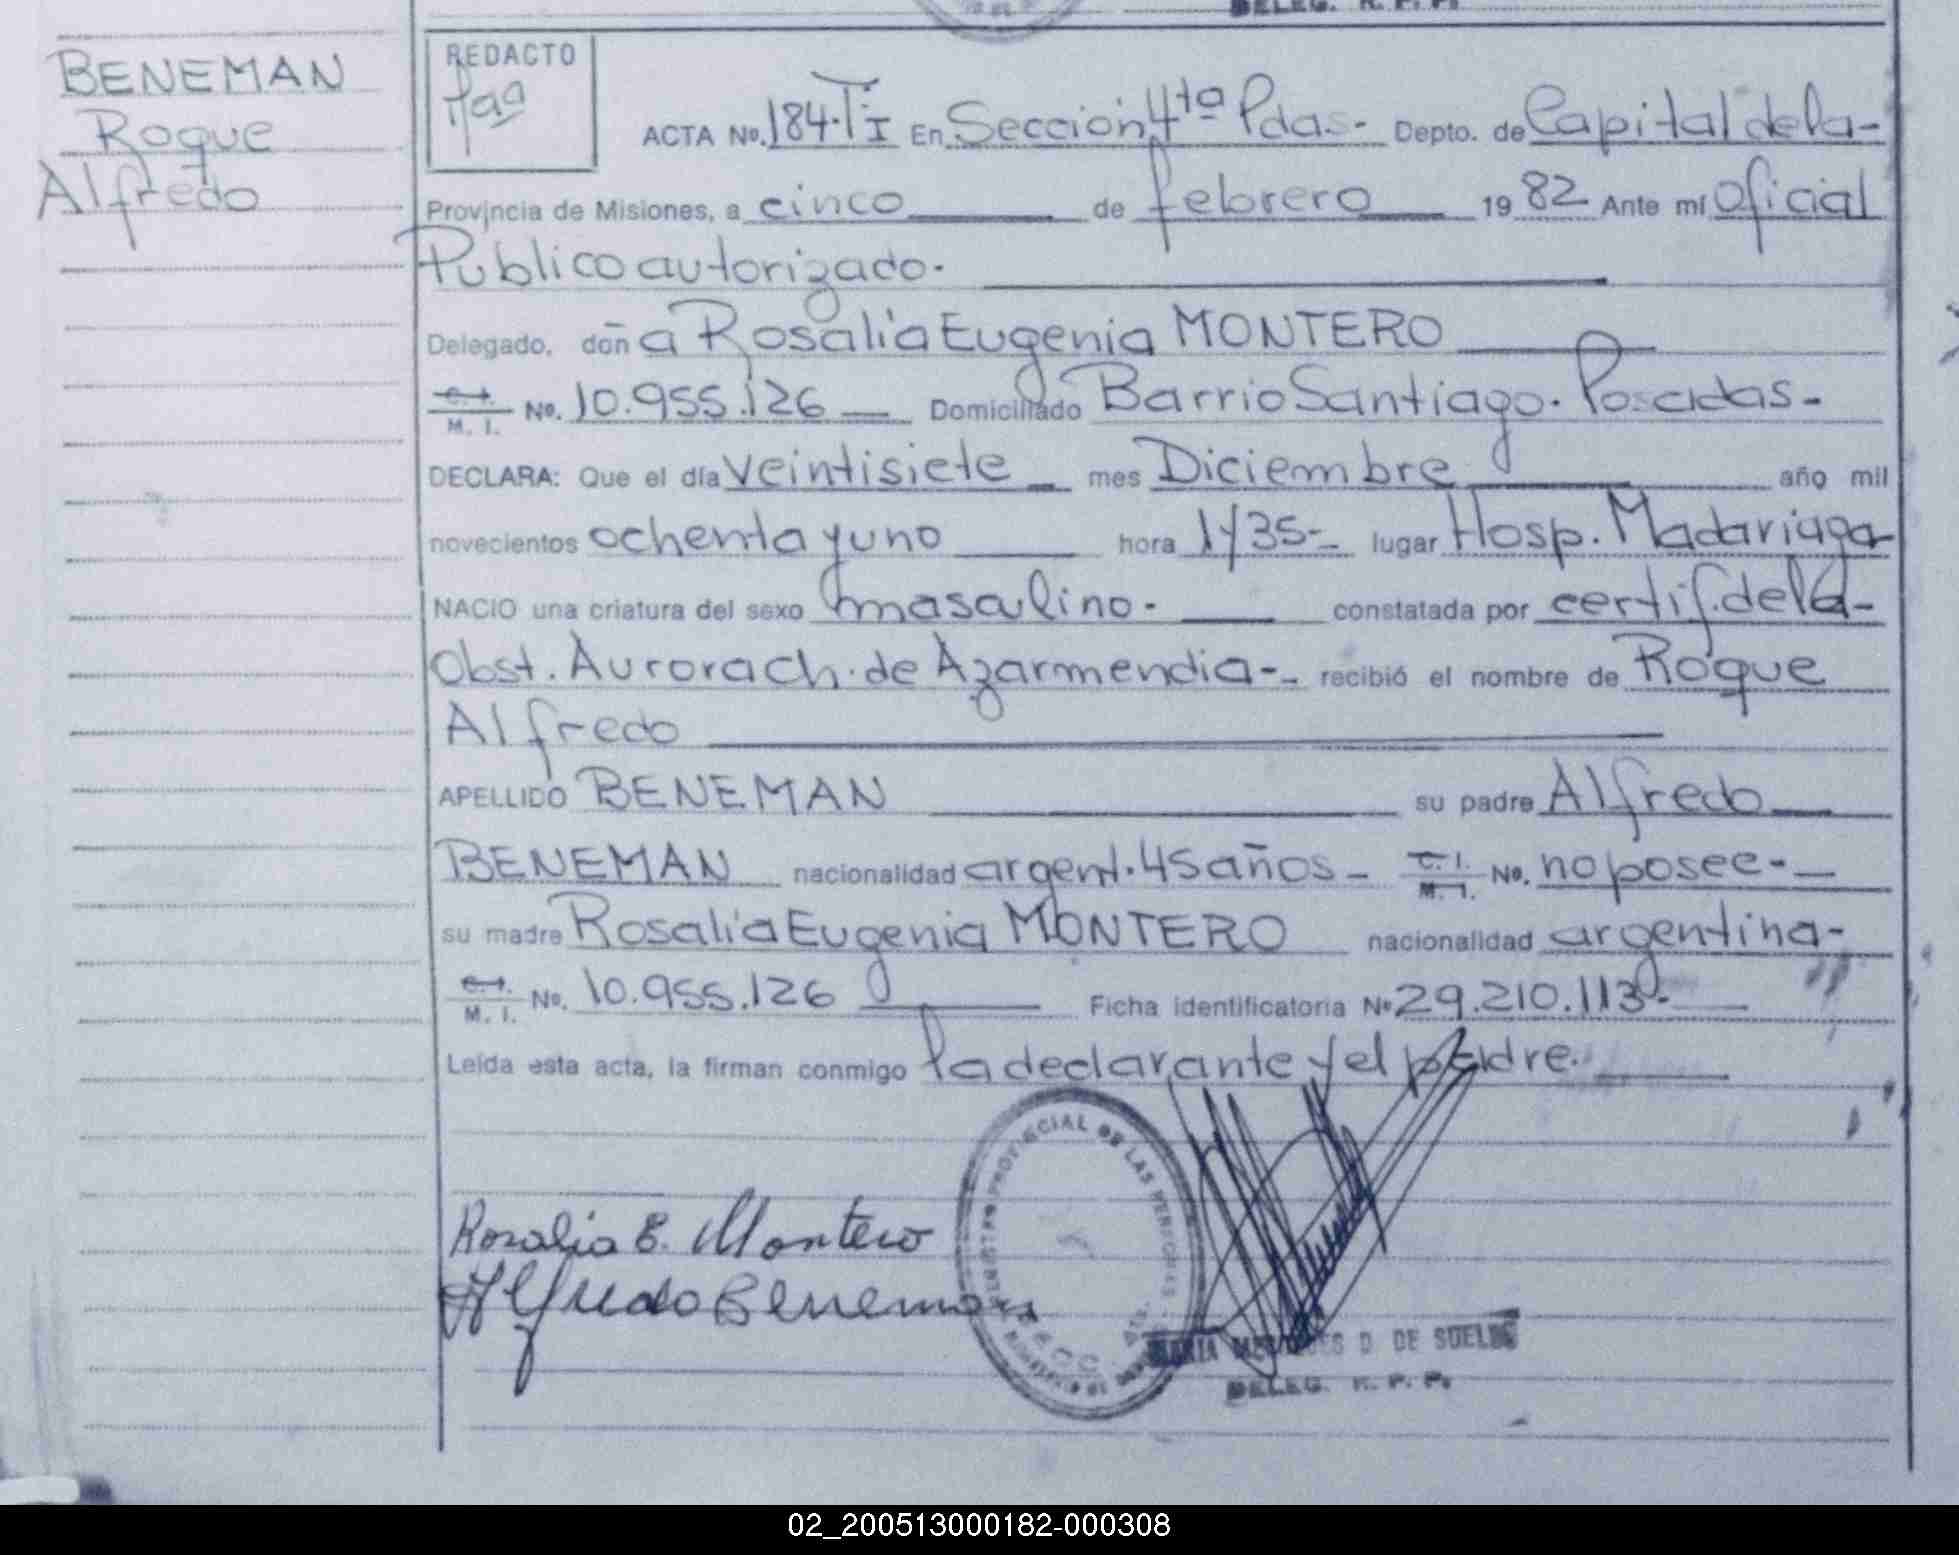 DELEG. R. P. P.
BENEMAN
Roque
Alfredo
REDACTO
ACTA No. 184.TI En Sección 4ta Pdas.- Depto. de Capital dela-
Provincia de Misiones, a cinco de febrero 1982 Ante mí Oficial
Publico autorizado.
Delegado, doña Rosalia Eugenia MONTERO
C. I.
M. I. No. 10.955.126 Domiciliado Barrio Santiago. Posadas-
DECLARA: Que el día veintisiete mes Diciembre año mil
novecientos ochenta y uno hora 1y35- lugar Hosp. Madariaga
NACIO una criatura del sexo masculino.- constatada por certif. dela-
Obst. Aurora Ch. de Azarmendia-- recibió el nombre de Roque
Alfredo
APELLIDO BENEMAN su padre Alfredo
BENEMAN nacionalidad argent. 45 años- C. I.
M. I. No. no posee-
su madre Rosalia Eugenia MONTERO nacionalidad argentina-
C. I.
M. I. No. 10.955.126 Ficha identificatoria No 29.210.113.-
Leída esta acta, la firman conmigo la declarante y el padre.
Rosalia E. Montero
Alfredo Beneman
PROVINCIAL DE LAS PERSONAS
MARIA MERCEDES D. DE SUELDO
DELEG. R. P. P.
02_200513000182-000308